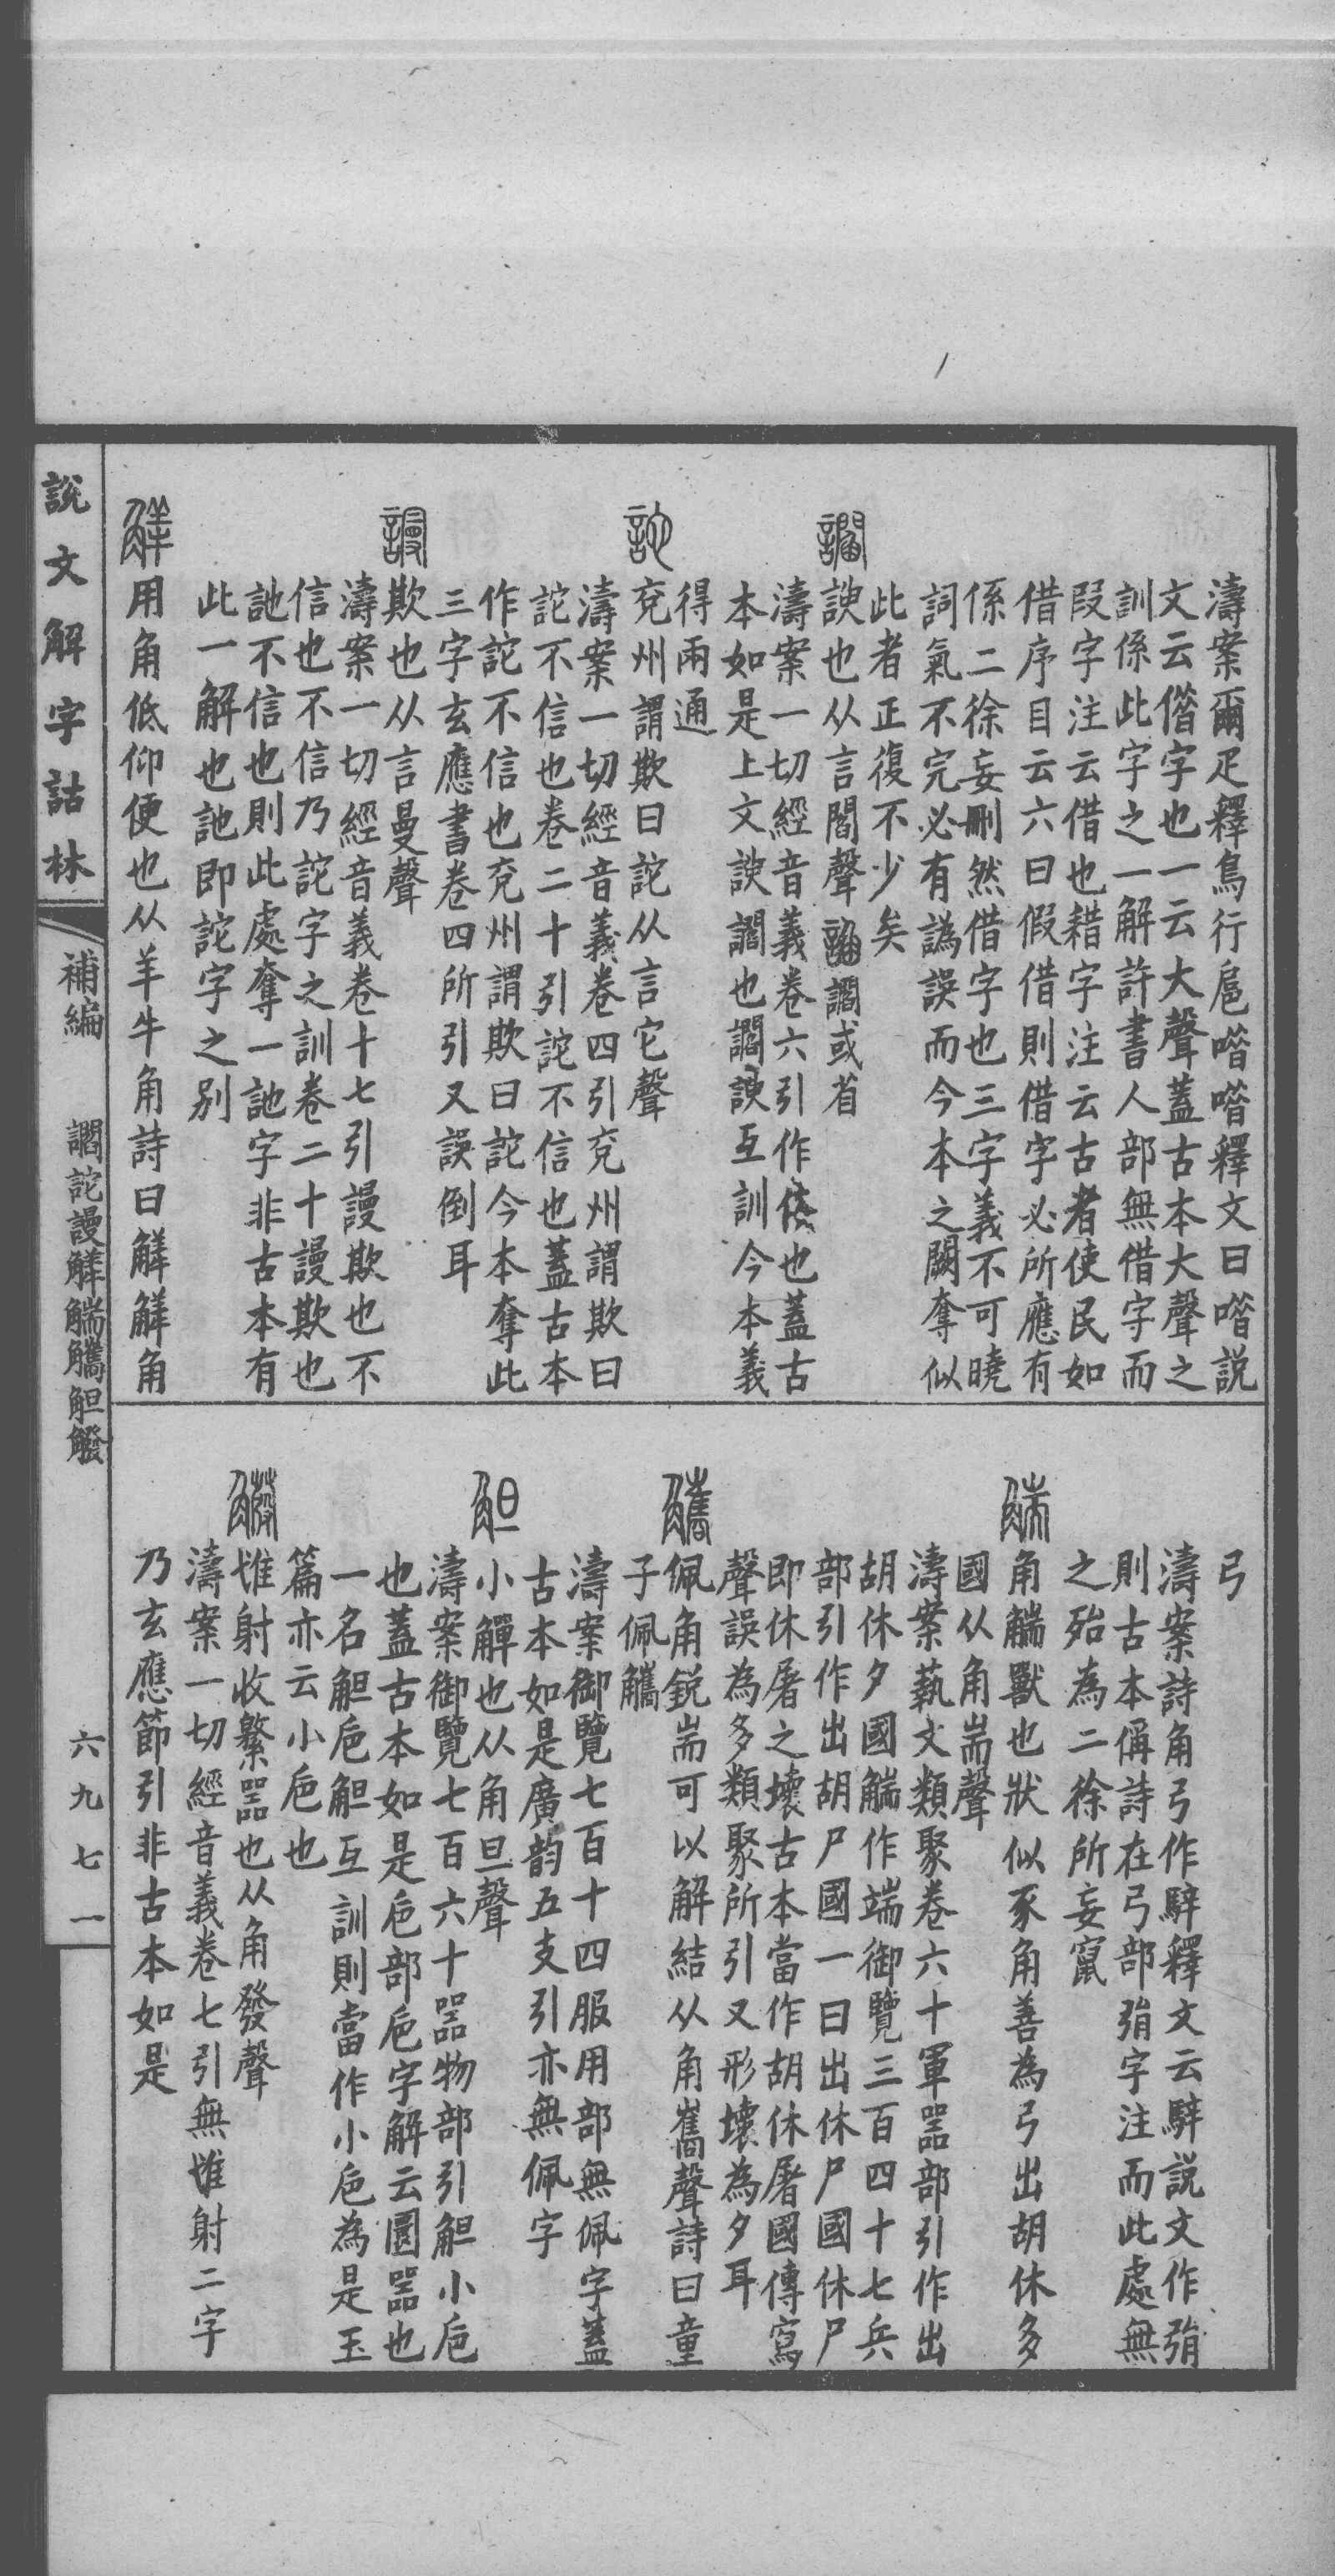 濤案爾疋釋鳥行扈唶唶釋文曰唶說
文云偕字也一云大聲蓋古本大聲之
訓係此字之一解許書人部無借字而
叚字注云借也耤字注云古者使民如
借序目云六曰假借則借字必所應有
係二徐妄刪然借字也三字義不可曉
詞氣不完必有譌誤而今本之闕奪似
此者正復不少矣
讇
諛也从言閻聲讇或省
濤案一切經音義卷六引作佞也蓋古
本如是上文諛讇也讇諛互訓今本義
得兩通
詑
兗州謂欺曰詑从言它聲
濤案一切經音義卷四引兗州謂欺曰
詑不信也卷二十引詑不信也蓋古本
作詑不信也兗州謂欺曰詑今本奪此
三字玄應書卷四所引又誤倒耳
謾
欺也从言曼聲
濤案一切經音義卷十七引謾欺也不
信也不信乃詑字之訓卷二十謾欺也
訑不信也則此處奪一訑字非古本有
此一解也訑即詑字之別
觲
用角低仰便也从羊牛角詩曰觲觲角
弓
濤案詩角弓作騂釋文云騂説文作弲
則古本偁詩在弓部弲字注而此處無
之殆為二徐所妄竄
觿
角觿獸也狀似豕角善為弓出胡休多
國从角耑聲
濤案蓺文類聚卷六十軍器部引作出
胡休夕國觿作端御覽三百四十七兵
部引作出胡尸國一曰出休尸國休尸
即休屠之壞古本當作胡休屠國傳寫
聲誤為多類聚所引又形壞為夕耳
觿
佩角銳耑可以解結从角巂聲詩曰童
子佩觿
濤案御覽七百十四服用部無佩字蓋
古本如是廣韵五支引亦無佩字
觛
小觶也从角旦聲
濤案御覽七百六十器物部引觛小巵
也蓋古本如是巵部巵字解云圜器也
一名觛巵觛互訓則當作小巵為是玉
篇亦云小巵也
䚨
惟射收繁器也从角發聲
濤案一切經音義卷七引無惟射二字
乃玄應節引非古本如是
說文解字詁林
補編
讇詑謾觲觿觿觛䚨
六九七一